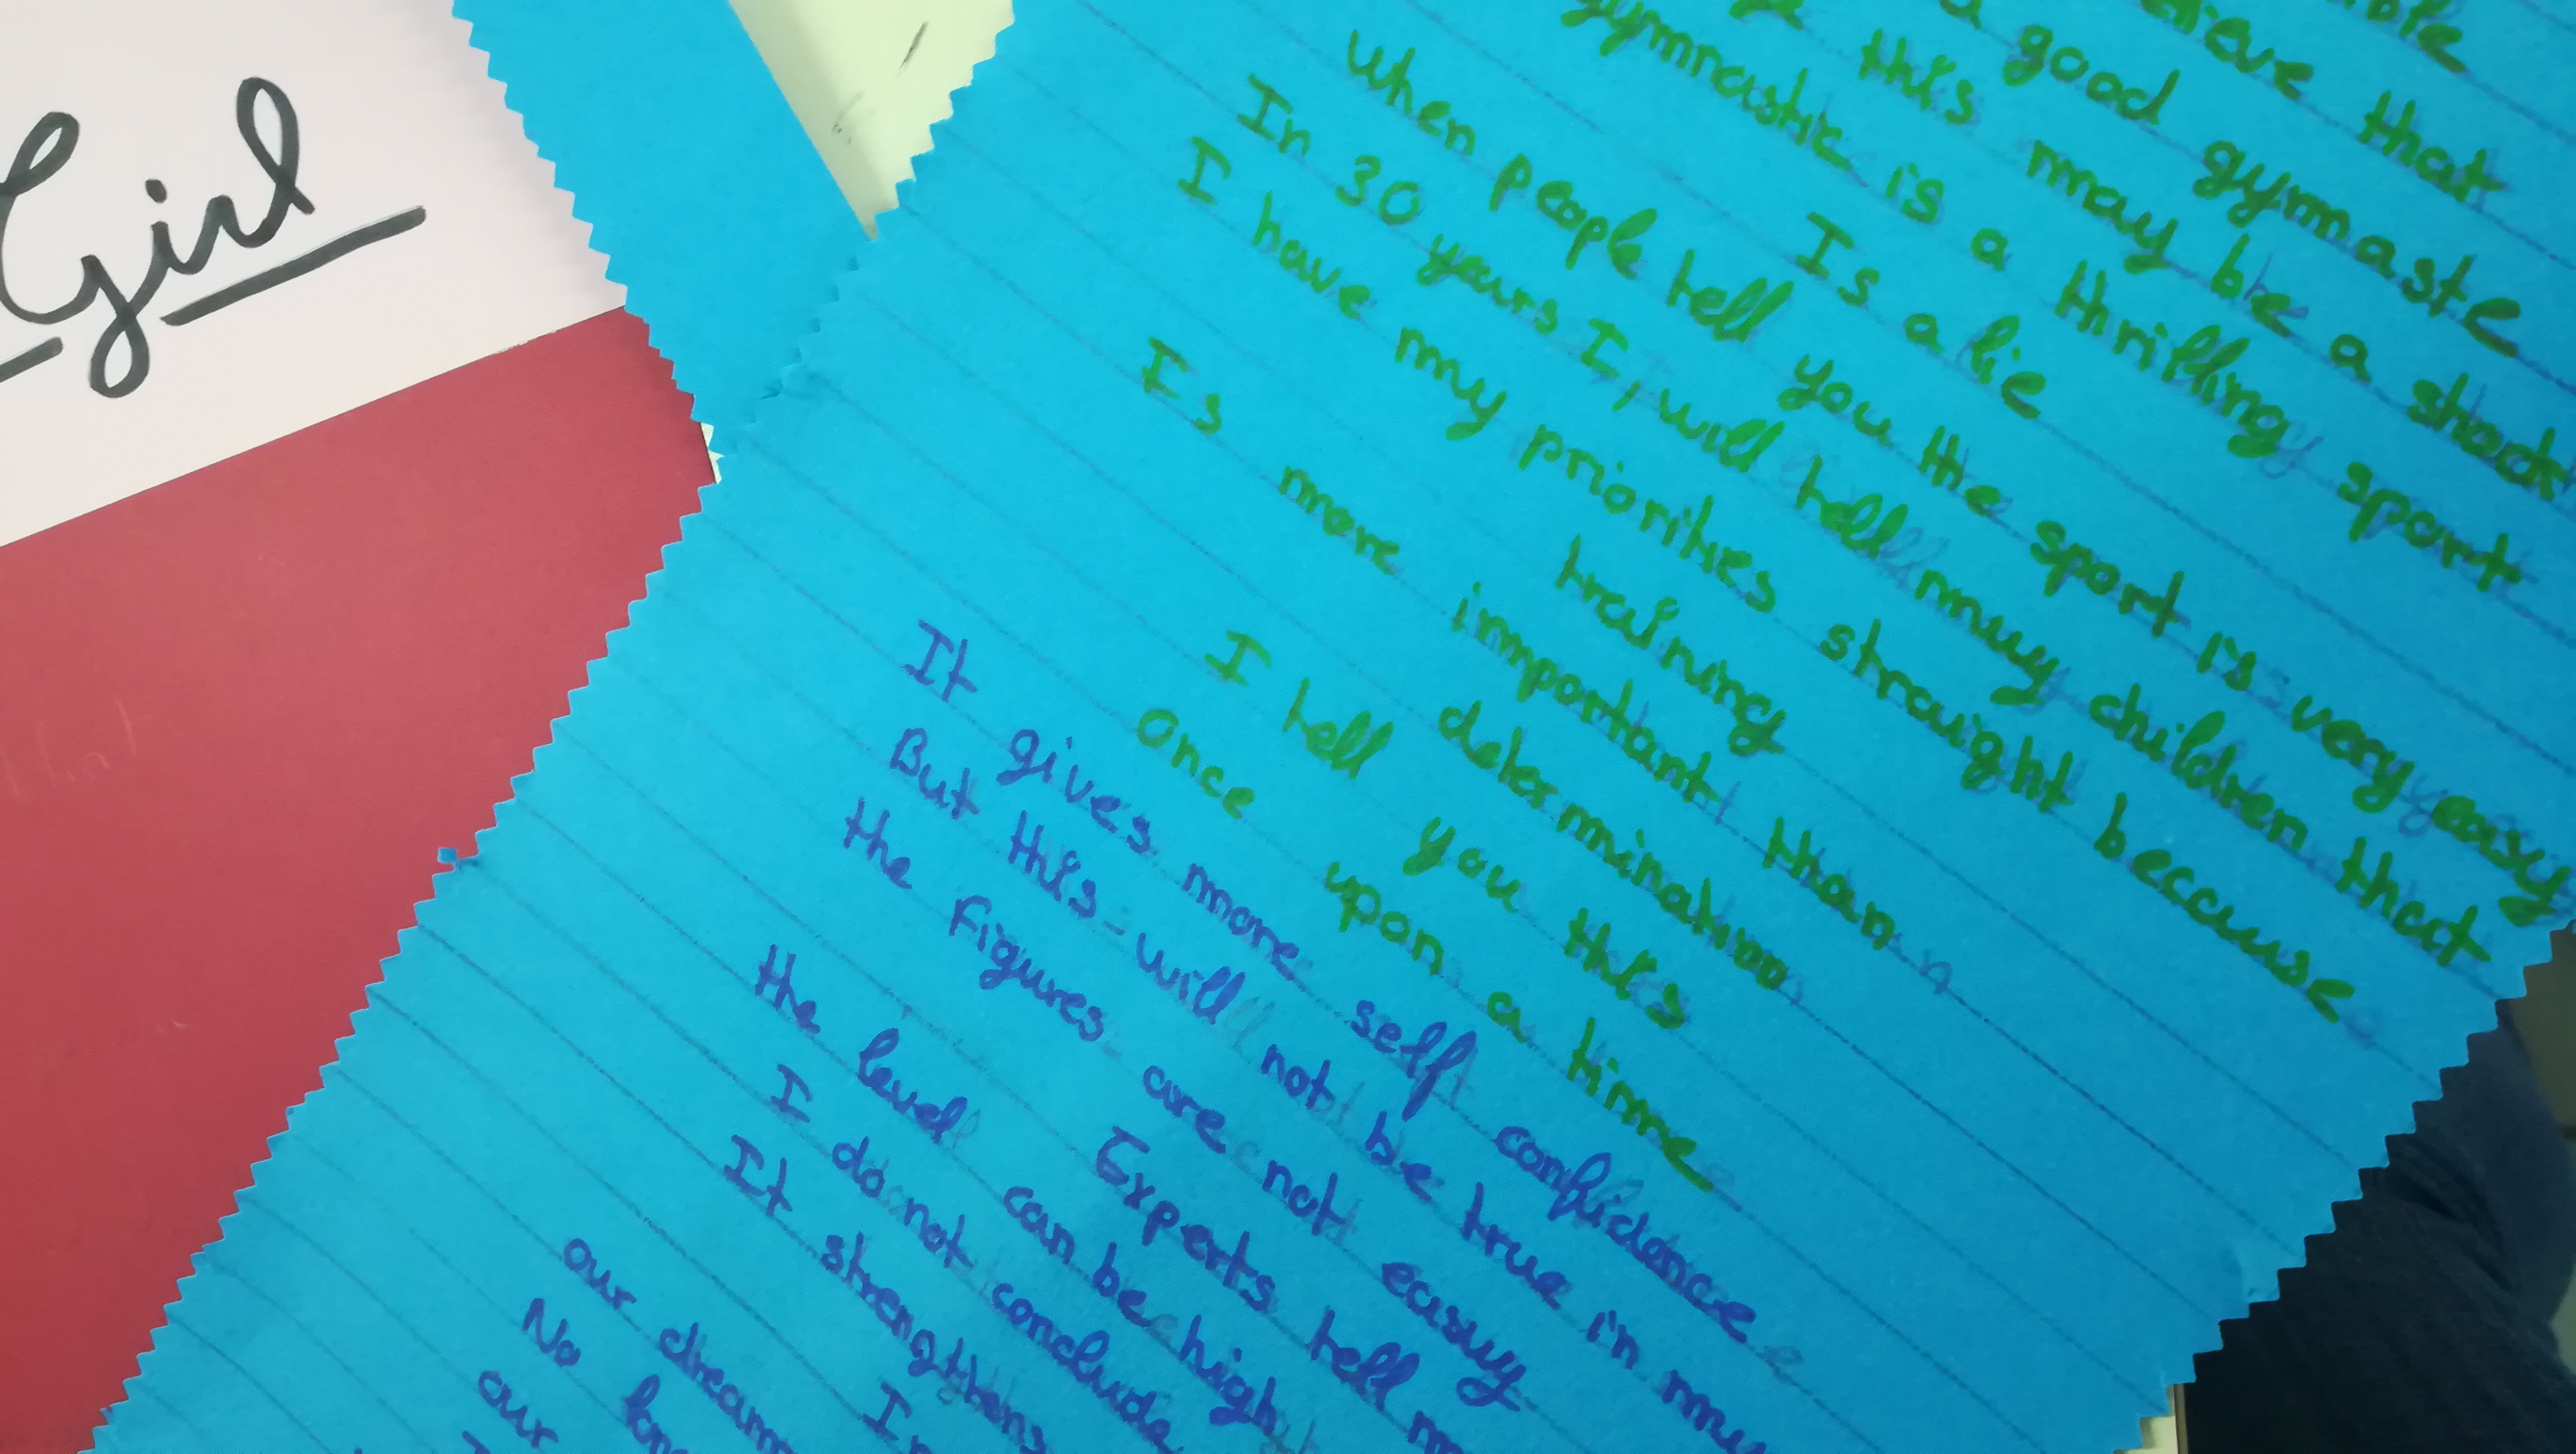 Girl
that
a good gymnaste
this may be a shock
gymnastic is a thrilling sport
Is a lie
when people tell you the sport is very easy
In 30 years I, will tell my children that
I have my priorities straight because
training
Is more important than
determination
I tell you this
Once upon a time
It gives more self confidence
But this will not be true in my
the figures are not easy
Experts tell
the level can be high
I do not conclude
It strengthens
our dream
No
our